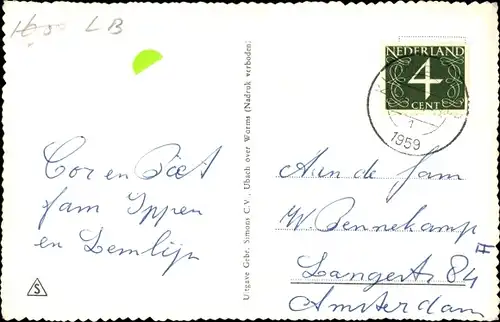 LB
NEDERLAND
4
CENT
1
1959
Cor en Piet
fam Ippen
en
Uitgave Gebr. Simons C.V., Ubach over Worms (Nadruk verboden)
Aan de fam
W. Bennekamp
Langest 84 II
Amsterdam
S